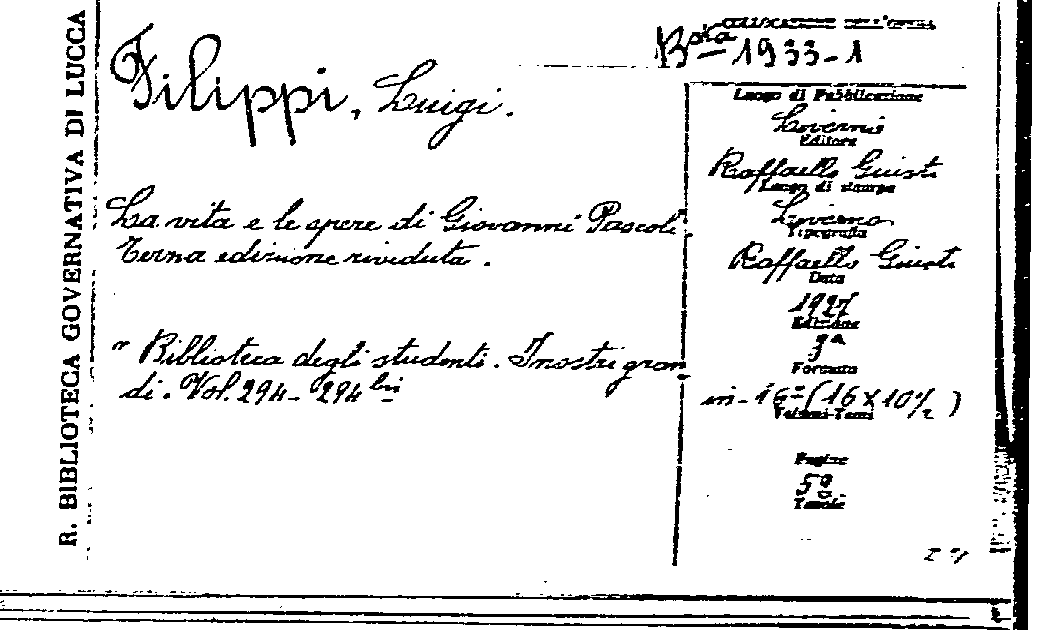 R. BIBLIOTECA GOVERNATIVA DI LUCCA
COLLOCAZIONE DELL'OPERA
Bsta 1933-1
Filippi, Luigi.
La vita e le opere di Giovanni Pascoli.
Terza edizione riveduta.
" Biblioteca degli studenti. I nostri gran-
di. Vol. 294-294 bis
Luogo di Pubblicazione
Livorno
Editore
Raffaello Giusti
Luogo di stampa
Livorno
Tipografia
Raffaello Giusti
Data
1927
Edizione
3ª
Formato
in-16º (16 X 10½)
Volumi-Tomi
Pagine
58.
Tavole